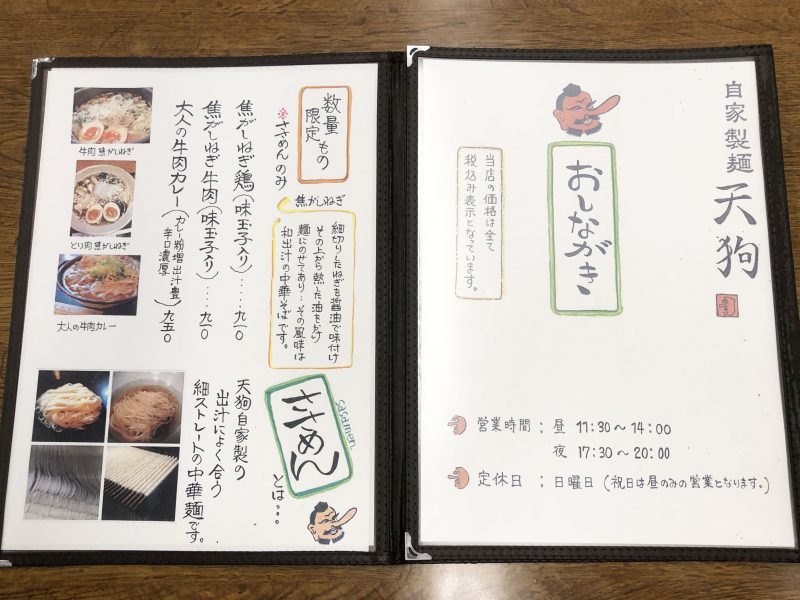 自家製麺 天狗
おしながき
当店の価格は全て
税込み表示となっています。
営業時間：昼 11:30～14:00
夜 17:30～20:00
定休日：日曜日（祝日は昼のみの営業となります。）
数量もの
限定
※ささめんのみ
焦がしねぎ
細切りしたねぎを醤油で味付け
その上から熱した油をかけ
麺にのせてあり…その風味は
和出汁の中華そばです。
焦がしねぎ鶏（味玉子入り）‥‥九一〇
焦がしねぎ牛肉（味玉子入り）‥‥九一〇
大人の牛肉カレー（カレー粉増出汁豊 辛口濃厚）九五〇
牛肉焦がしねぎ
とり肉焦がしねぎ
大人の牛肉カレー
sasamen
ささめん
とは…
天狗自家製の
出汁によく合う
細ストレートの中華麺です。